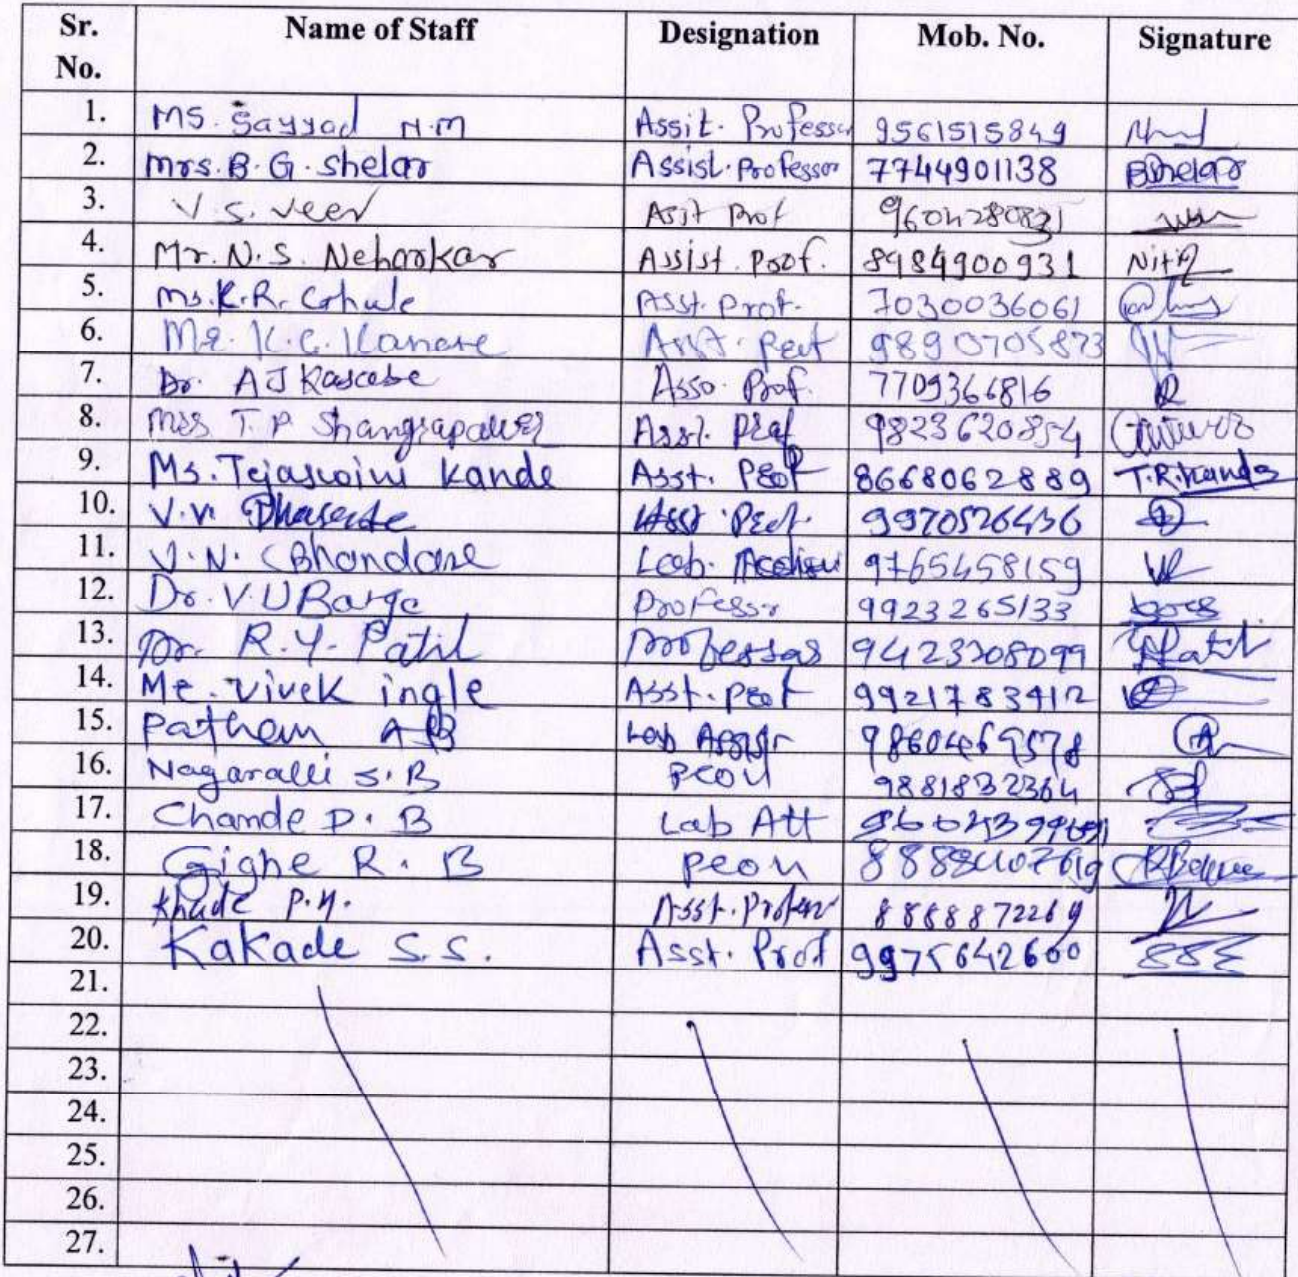 Sr. No. Name of Staff Designation Mob. No. Signature
1. Ms. Sayyad N.M Assit. Professor 9561515849
2. Mrs. B. G. Shelar Assist. Professor 7744901138 BShelar
3. V. S. Veer Asit Prof
4. Mr. N. S. Neharkar Assist. Prof. 8984900931 Nitin
5. Ms. K. R. Ghule Asst. Prof. 7030036061
6. Mr. K. C. Kanare Asst. Prof 9890705873
7. Dr. A J Kascabe Asso. Prof. 7709366816
8. Mrs T. P Asst. Prof 9823620854
9. Ms. Tejaswini Kande Asst. Prof 8668062889 T.R.Kande
10. V.V. Asst. Prof. 9970526436
11. V. N. Bhandare Lab. 9765458159
12. Dr. V. U Barge Professor 9923265133
13. Dr. R. Y. Patil Professor 9423308099 Patil
14. Mr. Vivek ingle Asst. Prof 9921783412
15. Pathan A B Lab
16. Nagaralli S. B peon 9881832364
17. Chande D. B Lab Att
18. Gighe R. B peon
19. Khade P. Y. Asst. Profesr 8888872269
20. Kakade S. S. Asst. Prof 9975642660 SSK
21.
22.
23.
24.
25.
26.
27.